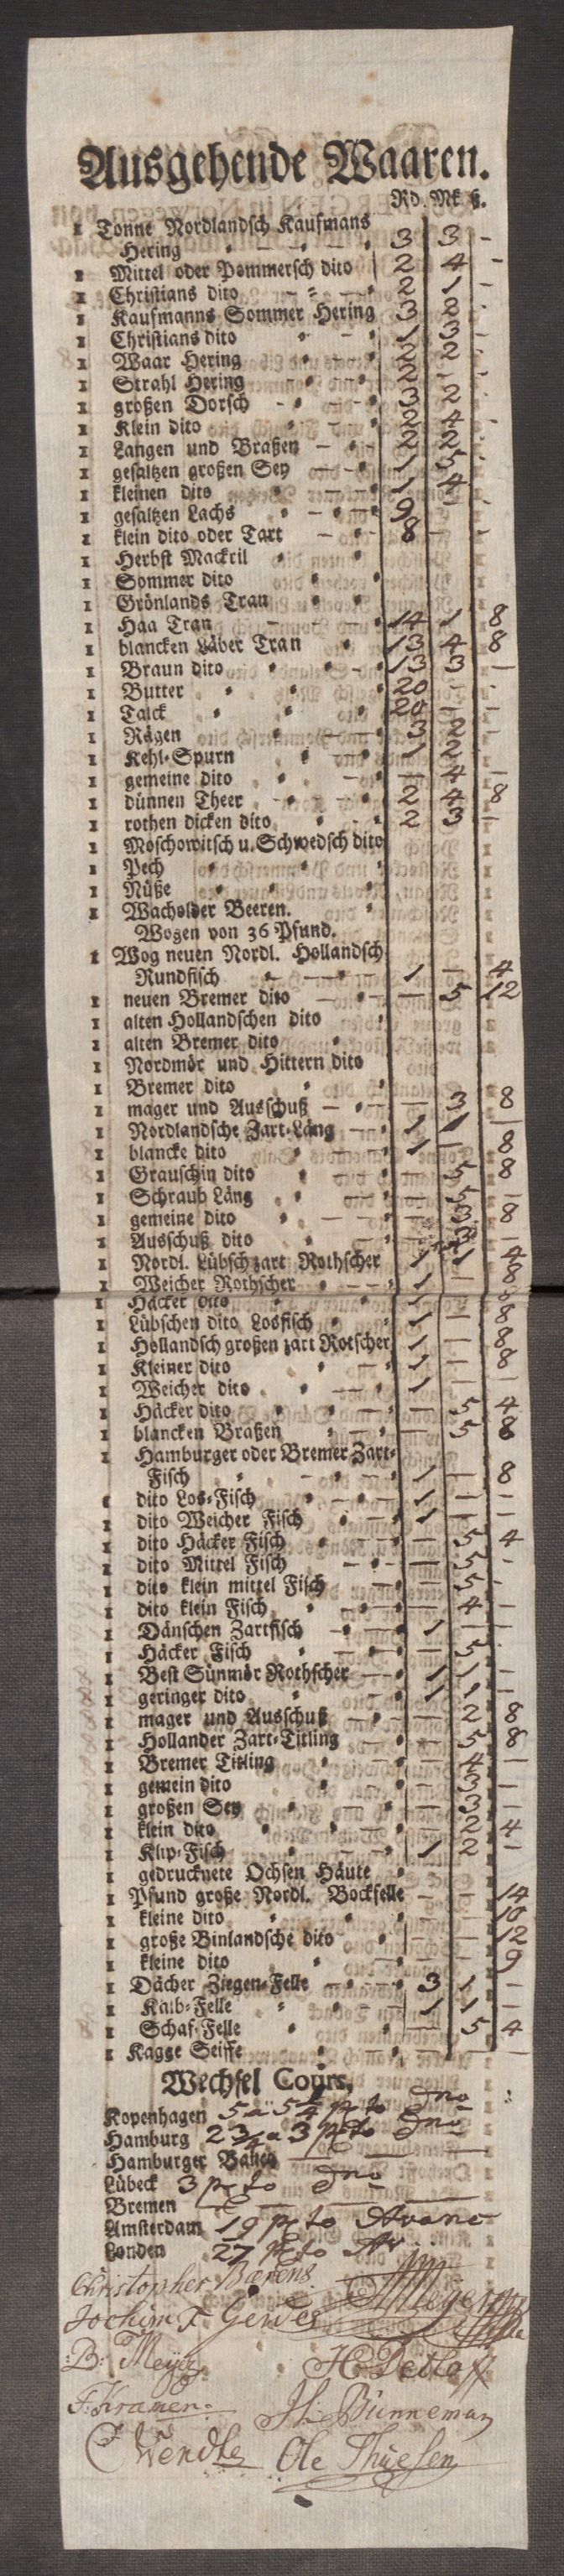 Ausgehende Waaren.
Rd. Mk ß.
1 Tonne Nordlandsch Kaufmans
Hering 3 3 -
1 Mittel oder Pommersch dito 2 4 -
1 Christians dito 2 1 -
1 Kaufmanns Sommer Hering 3 2
1 Christians dito
1 Waar Hering
1 Strahl Hering
1 großen Dorsch
1 Klein dito
1 Langen und Braßen
1 gesaltzen großen Sey
1 kleinen dito 1 4
1 gesaltzen Lachs 9 -
1 klein dito oder Tart 8 -
1 Herbst Mackril
1 Sommer dito
1 Grönlands Tran
1 Haa Tran 14 1 8
1 blancken Läber Tran 13 4 8
1 Braun dito 13 3 -
1 Butter 20 - -
1 Talck 24 - -
1 Rägen 3 2 -
1 Kehl-Spurn 1 2
1 gemeine dito - 4 -
1 dünnen Theer 2 4 8
1 rothen dicken dito 2 3 -
1 Moschowitsch u. Schwedsch dito
1 Pech
1 Nüße
1 Wacholder Beeren.
Wogen von 36 Pfund.
1 Wog neuen Nordl. Hollandsch
Rundfisch 1 - 4
1 neuen Bremer dito - 5 12
1 alten Hollandschen dito
1 alten Bremer dito
1 Nordmör und Hittern dito
1 Bremer dito
1 mager und Ausschuß - 3 8
1 Nordlandsche Zart-Läng 1 1 -
1 blancke dito 1 - 8
1 Grauschin dito - 5 8
1 Schraub Läng - 5 -
1 gemeine dito - 3 8
1 Ausschuß dito
1 Nordl. Lübsch zart Rothscher 1 1 4
1 Weicher Rothscher 1 - 8
1 Häcker dito
1 Lübschen dito Losfisch 1 - 8
1 Hollandsch großen zart Rotscher 1 - 8
1 Kleiner dito 1 - 8
1 Weicher dito 1 - -
1 Häcker dito - 5 4
1 blancken Braßen - 5 8
1 Hamburger oder Bremer Zart-
Fisch 1 - 8
1 dito Los-Fisch 1 - -
1 dito Weicher Fisch 1 - -
1 dito Häcker Fisch - 5 4
1 dito Mittel Fisch - 5 -
1 dito klein mittel Fisch - 5 -
1 dito klein Fisch - 4 -
1 Dänschen Zartfisch 1 - -
1 Häcker Fisch - 5
1 Best Sünmör Rothscher 1 1 -
1 geringer dito 1 1 -
1 mager und Ausschuß - 2 8
1 Hollander Zart-Titling - 5 8
1 Bremer Titling - 4 -
1 gemein dito - 3 -
1 großen Sey - 3 -
1 klein dito - 2 4
1 Klip-Fisch 1 2 -
1 gedrucknete Ochsen Häute
1 Pfund große Nordl. Bockfelle - - 14
1 kleine dito - - 10
1 große Binlandsche dito - - 12
1 kleine dito - - 9
1 Dächer Ziegen-Felle 3 1 -
1 Kalb-Felle 1 1 -
1 Schaf-Felle - 5 4
1 Kagge Seiffe
Wechsel Cours,
Kopenhagen 5 a 5 1/4 pcto Dno
Hamburg 2 3/4 a 3 pcto Dno
Hamburger Banco
Lübeck 3 pcto Dno
Bremen
Amsterdam 19 pcto Avanc
Londen 27 pcto Av
Christopher Bærens
Jochim F Gerdes
B: Meyer H Detloff
F: Kramer: Bünneman
Wendte Ole Thuesen